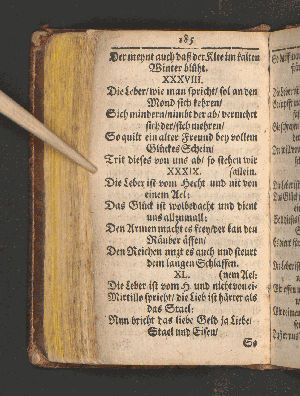 185
Der meynt auch daß der Klee im kalten
Winter blüht.
XXXVIII.
Die Leber/ wie man spricht/ sol an den
Mond sich kehren/
Sich mindern/ nimbt der ab/ vermehrt
sich der/ sich mehren/
So quilt ein alter Freund bey vollem
Glückes Schein/
Trit dieses von uns ab/ so stehen wir
XXXIX. (allein.
Die Leber ist vom Hecht und nit von
einem Ael:
Das Glück ist wolbedacht und dient
uns allzumall:
Den Armen macht es frey/ der kan den
Räuber äffen/
Den Reichen nützt es auch und steurt
dem langen Schlaffen.
XL. (nem Ael:
Die Leber ist vom H. und nicht von ei-
Mirtillo spricht/ die Lieb ist härter als
das Stael:
Nun bricht das liebe Geld ja Liebe/
Stael und Eisen/
So